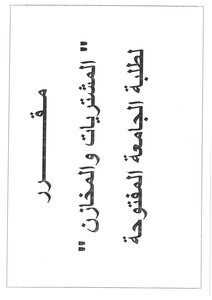 مقـــــرر
" المشتريات والمخازن "
لطلبة الجامعة المفتوحة